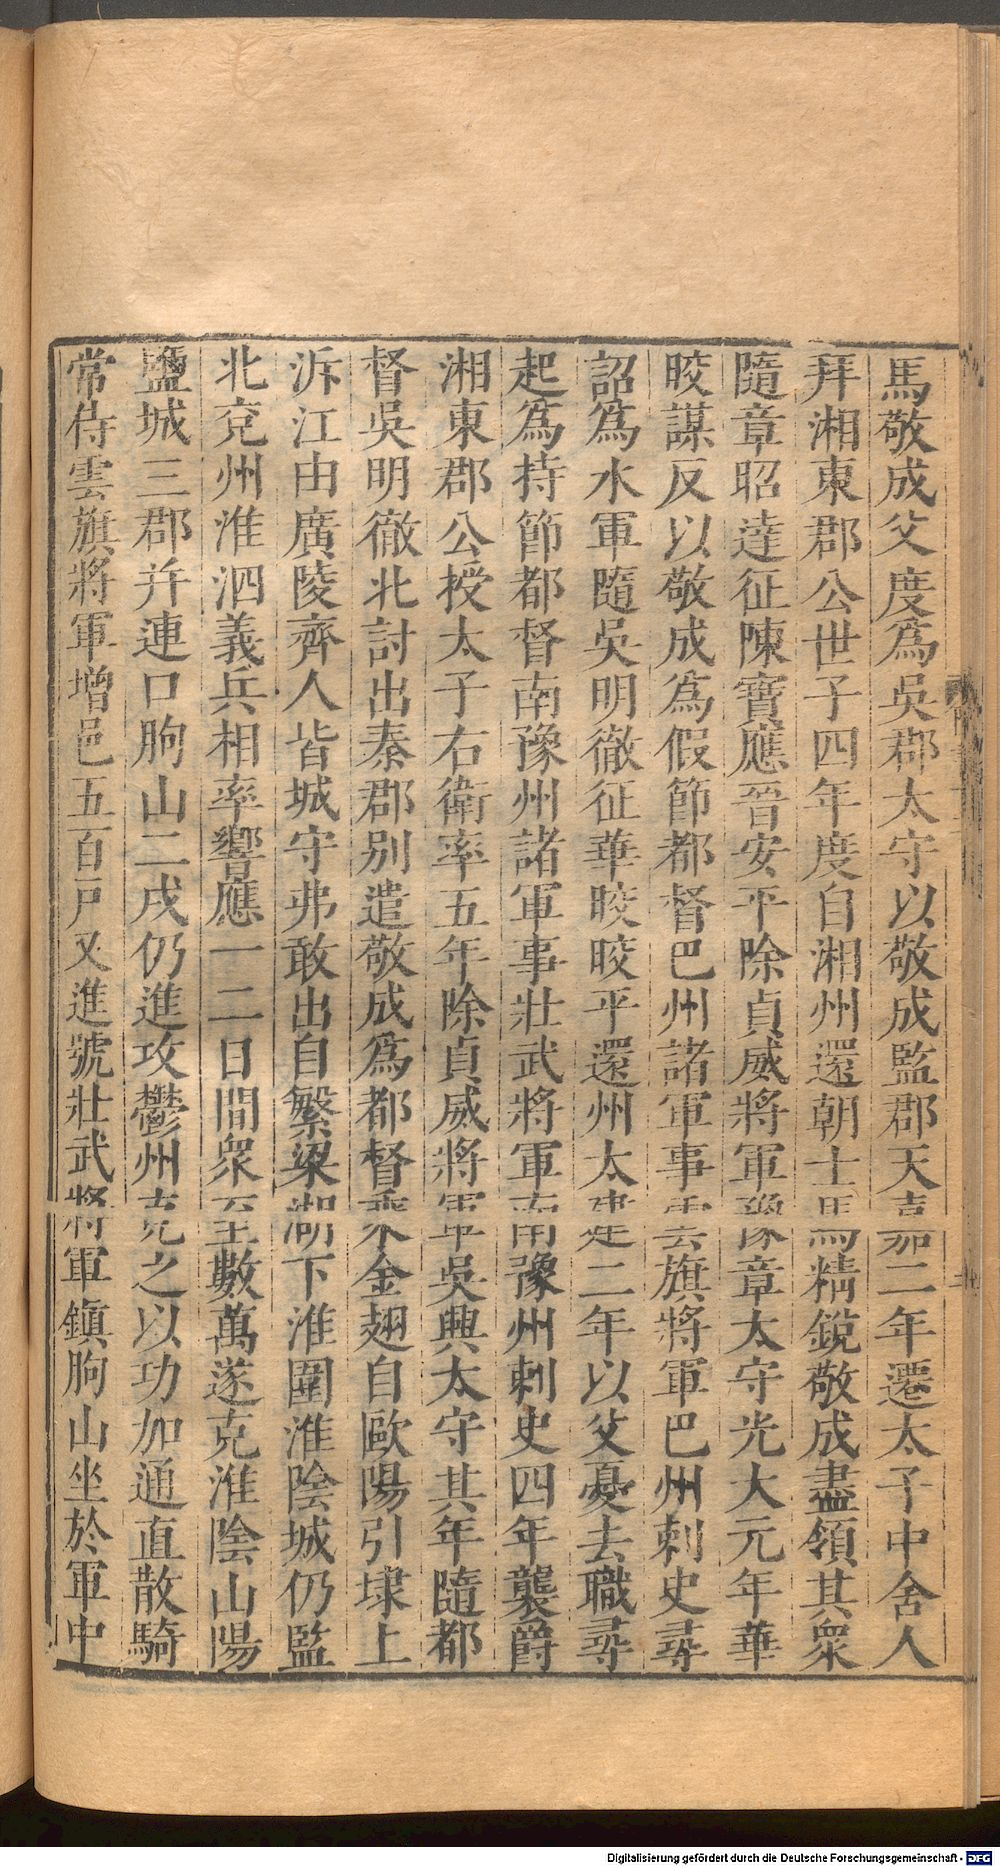 馬敬成父度爲吳郡太守以敬成監郡天嘉二年遷太子中舍人
拜湘東郡公世子四年度自湘州還朝士馬精銳敬成盡領其衆
隨章昭達征陳寶應晉安平除貞威將軍豫章太守光大元年華
皎謀反以敬成爲假節都督巴州諸軍事雲旗將軍巴州刺史尋
詔爲水軍隨吳明徹征華皎皎平還州太建二年以父憂去職尋
起爲持節都督南豫州諸軍事壯武將軍南豫州刺史四年襲爵
湘東郡公授太子右衛率五年除貞威將軍吳興太守其年隨都
督吳明徹北討出秦郡別遣敬成爲都督乘金翅自歐陽引埭上
泝江由廣陵齊人皆城守弗敢出自繁梁湖下淮圍淮陰城仍監
北兗州淮泗義兵相率響應一二日間衆至數萬遂克淮陰山陽
鹽城三郡并連口朐山二戍仍進攻鬱州克之以功加通直散騎
常侍雲旗將軍增邑五百戸又進號壯武將軍鎮朐山坐於軍中
Digitalisierung gefördert durch die Deutsche Forschungsgemeinschaft - DFG